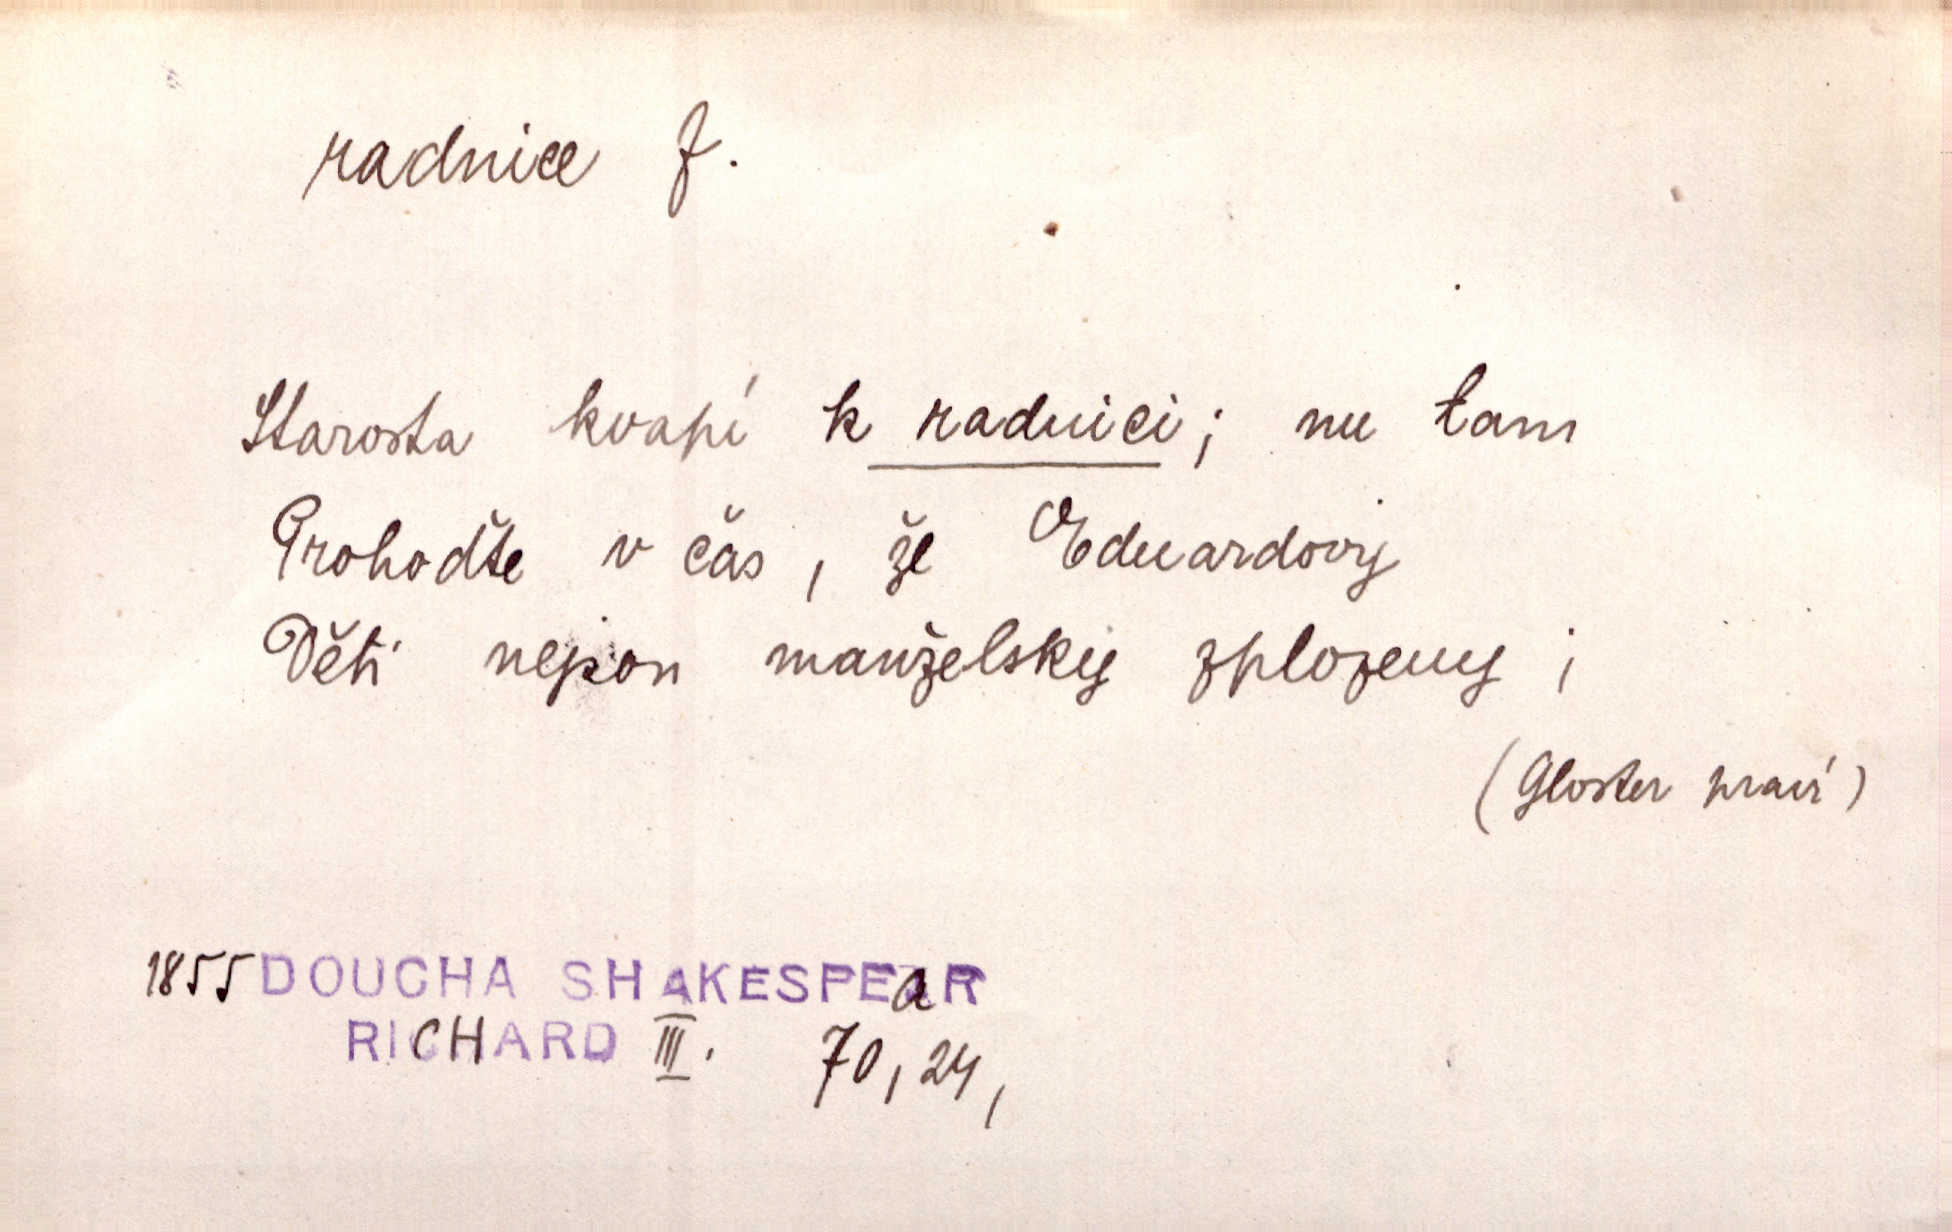 radnice f.
Starosta kvapí k radnici; nu tam
Prohoďte v čas, že Eduardovy
Děti nejson manželsky zplozeny;
(Gloster praví)
1855 DOUCHA SHAKESPEaR
RICHARD III. 70, 24,